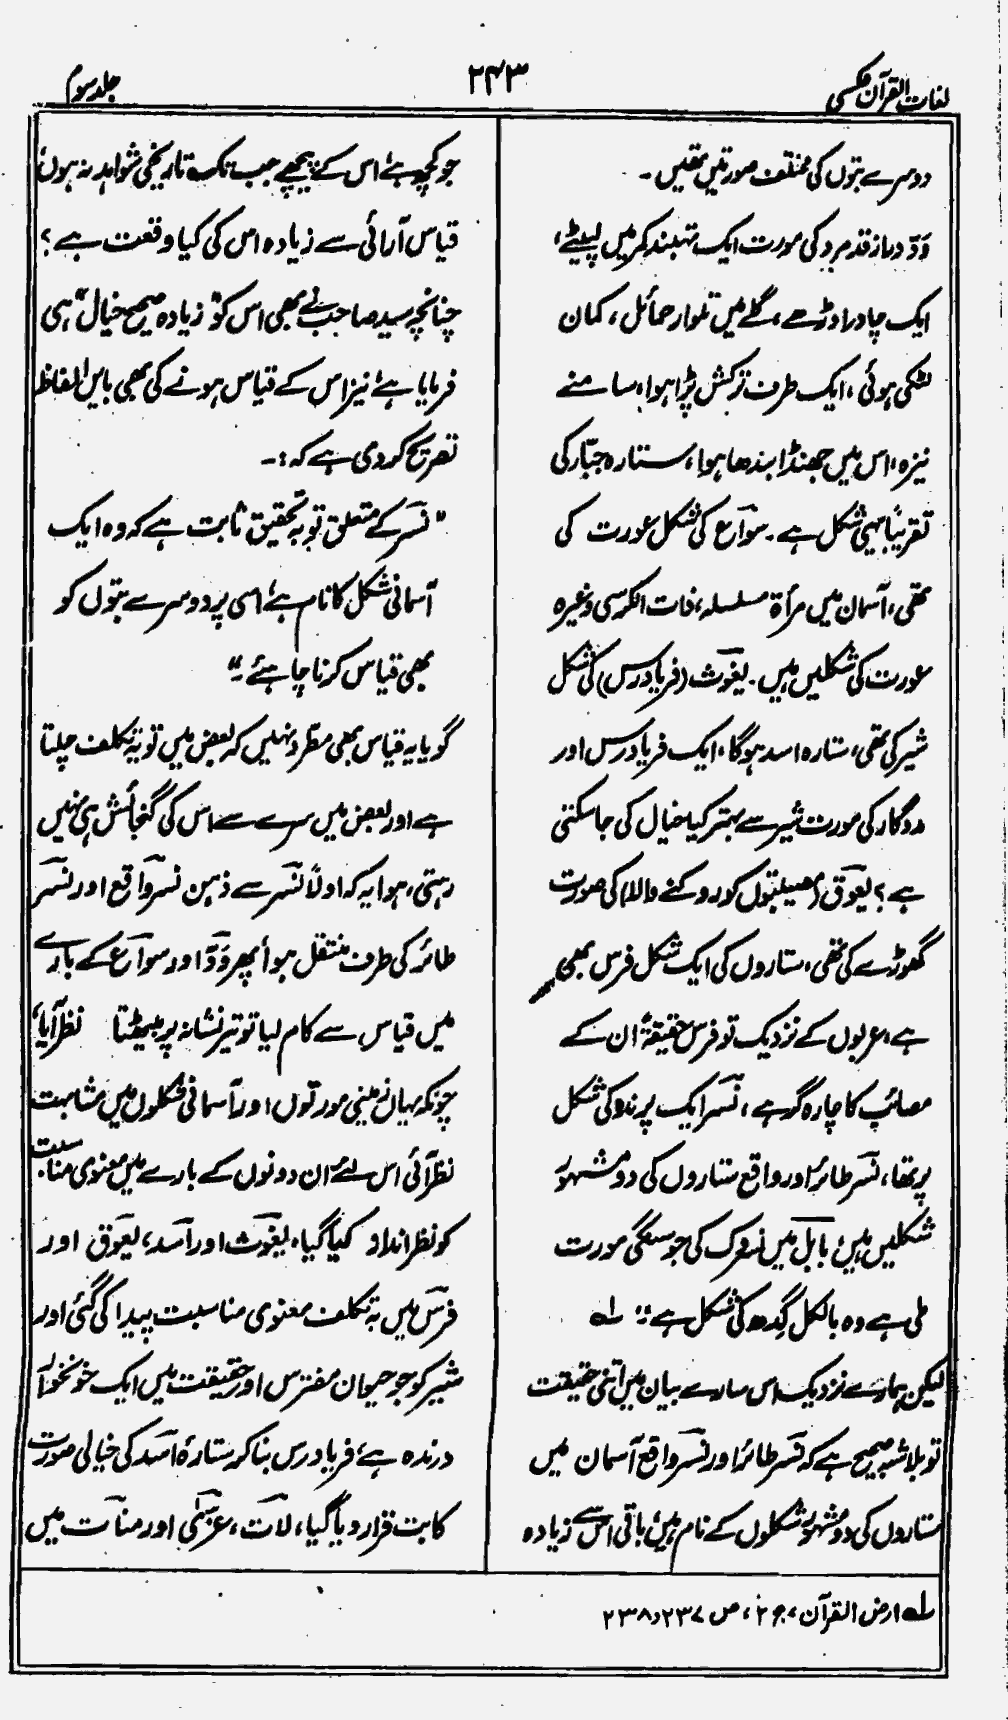 لغات القرآن عکسی
۲۴۳
جلد سوم
دوسرے بتوں کی مختلف صورتیں تھیں۔
وَدّ دراز قد مرد کی مورت ایک تہبند کمر میں لپیٹے،
ایک چادر اوڑھے، گلے میں تلوار حمائل، کمان
لٹکی ہوئی، ایک طرف ترکش پڑا ہوا، سامنے
نیزہ، اس میں جھنڈا بندھا ہوا، ستارہ جبّار کی
تقریباً یہی شکل ہے۔ سواع کی شکل عورت کی
تھی، آسمان میں مرأۃ مسلسلہ، ذات الکرسی وغیرہ
عورت کی شکلیں ہیں۔ یغوث (فریادرس) کی شکل
شیر کی تھی، ستارہ اسد ہوگا، ایک فریادرس اور
مددگار کی مورت شیر سے بہتر کیا خیال کی جاسکتی
ہے؟ یعوق (مصیبتوں کو روکنے والا) کی صورت
گھوڑے کی تھی، ستاروں کی ایک شکل فرس بھی
ہے، عربوں کے نزدیک تو فرس حقیقۃً ان کے
مصائب کا چارہ گر ہے، نسر ایک پرندہ کی شکل
پر تھا، نسر طائر اور واقع ستاروں کی دو مشہور
شکلیں ہیں، بابل میں نسروک کی جو سنگی مورت
ملی ہے وہ بالکل گِدھ کی شکل ہے:" لہ
لیکن ہمارے نزدیک اس سارے بیان میں اتنی حقیقت
تو بلاشبہ صحیح ہے کہ نسر طائر اور نسر واقع آسمان میں
ستاروں کی دو مشہور شکلوں کے نام ہیں، باقی اس سے زیادہ
جو کچھ ہے اس کے پیچھے جب تک تاریخی شواہد نہ ہوں،
قیاس آرائی سے زیادہ اس کی کیا وقعت ہے؟
چنانچہ سید صاحب نے بھی اس کو "زیادہ صحیح خیال" ہی
فرمایا ہے، نیز اس کے قیاس ہونے کی بھی بایں الفاظ
تصریح کردی ہے کہ:۔
"نسر کے متعلق تو بہ تحقیق ثابت ہے کہ وہ ایک
آسمانی شکل کا نام ہے، اسی پر دوسرے بتوں کو
بھی قیاس کرنا چاہئے۔"
گویا یہ قیاس بھی مطّرد نہیں کہ بعض میں تو بہ تکلف چلتا
ہے اور بعض میں سرے سے اس کی گنجائش ہی نہیں
رہتی، ہوا یہ کہ اولاً نسر سے ذہن نسر واقع اور نسر
طائر کی طرف منتقل ہوا، پھر وَدّ اور سواع کے بارے
میں قیاس سے کام لیا تو تیر نشانہ پر بیٹھتا نظر آیا،
چونکہ یہاں زمینی مورتوں اور آسمانی شکلوں میں مشابہت
نظر آئی اس لئے ان دونوں کے بارے میں معنوی مناسبت
کو نظر انداز کیا گیا، یغوث اور اسد، یعوق اور
فرس میں بہ تکلف معنوی مناسبت پیدا کی گئی اور
شیر کو جو حیوان مفترس اور حقیقت میں ایک خونخوار
درندہ ہے، فریادرس بنا کر ستارۂ اسد کی خیالی صورت
کا بت قرار دیا گیا، لات، عزّیٰ اور منات میں
لہ ارض القرآن، ج ۲، ص ۲۳۷ و ۲۳۸